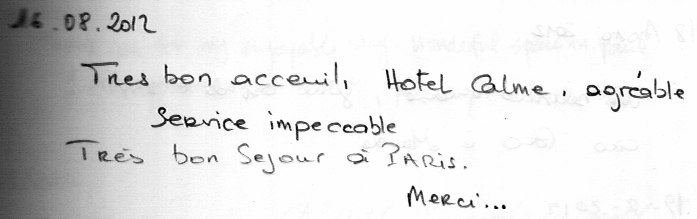 16.08.2012
Tres bon acceuil, Hotel Calme, agréable
Service impeccable
Très bon Sejour à PARIS.
Merci...